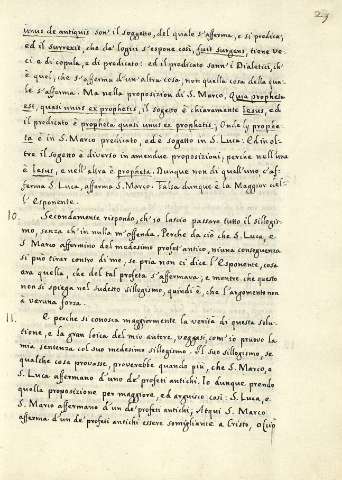 29
unus de antiquis son' il soggetto, del quale s'afferma, e si predica;
ed il surrexit, che da' logici s'espone così, fuit surgens, tiene ve-
ci e di copula, e di predicato: ed il predicato sonn' i Dialetici, ch'
è quel, che s'afferma d'un'altra cosa, non quella cosa della qua-
le s'afferma. Ma nella proposizion di S. Marco, Quia propheta
est, quasi unus ex prophetis, il sogetto è chiaramente Iesus, ed
il predicato è propheta quasi unus ex prophetis; Onde q prophe-
ta è in S. Marco predicato, ed è sogetto in S. Luca. Ed in ol-
tre il sogetto è diverso in amendue proposizioni, perche nell'una
è Iesus, e nell'altra è propheta. Dunque non di quell'uno c'af-
ferma S. Luca, afferma S. Marco. Falsa dunque è la Maggior del-
l'Esponente.
10. Secondamente rispondo, ch'io lascio passare tutto il sillogis-
mo, senza ch'in nulla m'offenda. Perche da ciò che S. Luca, e
S. Marco affermino del medesimo profet'antico, niuna conseguenza
si può tirar contro di me, se pria non ci dice l'Esponente, cosa
era quella, che del tal profeta s'affermava; e mentre che questo
non si spiega nel sudetto sillogismo, quindi è, che l'argomento non
à veruna forza.
11. E perche si conosca maggiormente la verità di questa solu-
tione, e la gran loica del mio autore, veggasi, com'io pruovo la
mia sentenza col suo medesimo sillogismo. Il suo sillogismo, se
qualche cosa provasse, proverebbe quando più, che S. Marco, e
S. Luca affermano d'uno de' profeti antichi. Io dunque prendo
quella proposizione per maggiore, ed arguisco così: S. Luca, e
S. Marco affermano d'un de' profeti antichi; Atqui S. Marco
afferma d'un de' profeti antichi essere somigliante a Cristo, o